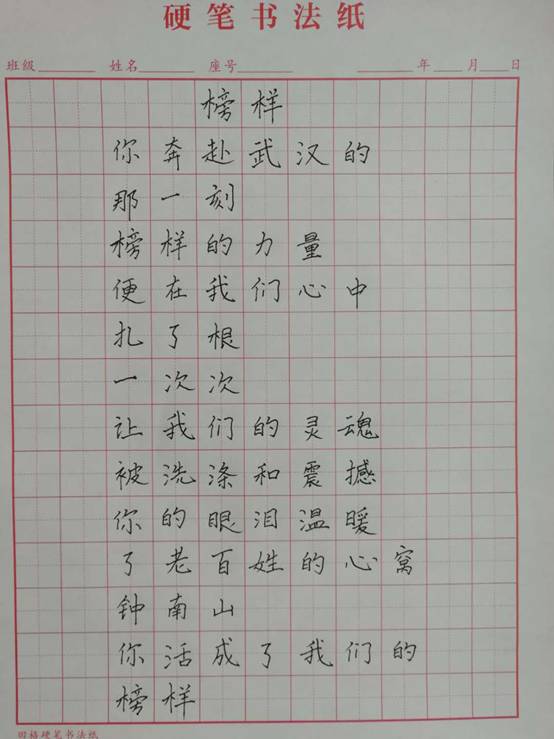 硬笔书法纸
班级 姓名 座号 年 月 日
榜样
你奔赴武汉的
那一刻
榜样的力量
便在我们心中
扎了根
一次次
让我们的灵魂
被洗涤和震撼
你的眼泪温暖
了老百姓的心窝
钟南山
你活成了我们的
榜样
田格硬笔书法纸